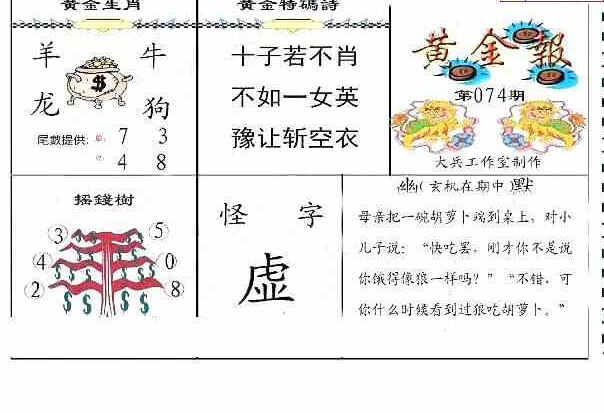 黄金生肖
羊 牛
$
龙 狗
尾數提供: 7 3
4 8
黄金特碼詩
十子若不肖
不如一女英
豫让斩空衣
黄金報
第074期
大兵工作室制作
摇錢樹
3 5
4 0
2 8
怪 字
虚
幽(玄机在期中)默
母亲把一碗胡萝卜端到桌上，对小
儿子说：“快吃罢，刚才你不是说
你饿得像狼一样吗？”“不错，可
你什么时候看到过狼吃胡萝卜。”